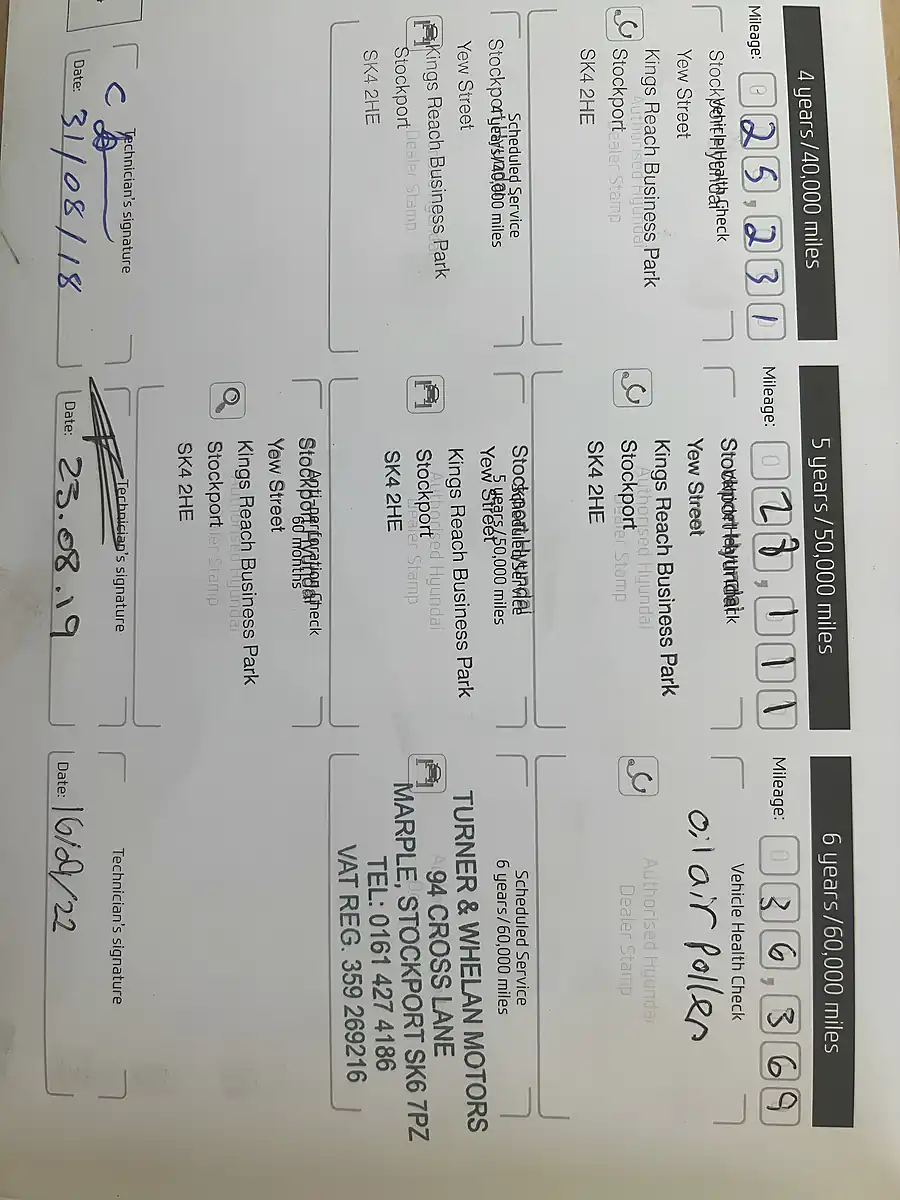 4 years/40,000 miles
Mileage: 025,231
Vehicle Health Check
Stockport Hyundai
Yew Street
Authorised Hyundai
Kings Reach Business Park
Dealer Stamp
Stockport
SK4 2HE
Scheduled Service
4 years/40,000 miles
Stockport Hyundai
Yew Street
Kings Reach Business Park
Dealer Stamp
Stockport
SK4 2HE
Technician's signature
Date: 31/08/18
5 years/50,000 miles
Mileage: 028,111
Vehicle Health Check
Stockport Hyundai
Yew Street
Kings Reach Business Park
Authorised Hyundai
Stockport
Dealer Stamp
SK4 2HE
Scheduled Service
5 years/50,000 miles
Stockport Hyundai
Yew Street
Kings Reach Business Park
Authorised Hyundai
Stockport
Dealer Stamp
SK4 2HE
Anti-perforation Check
60 months
Stockport Hyundai
Yew Street
Kings Reach Business Park
Authorised Hyundai
Stockport
Dealer Stamp
SK4 2HE
Technician's signature
Date: 23.08.19
6 years/60,000 miles
Mileage: 036,369
Vehicle Health Check
oil air pollen
Authorised Hyundai
Dealer Stamp
Scheduled Service
6 years/60,000 miles
TURNER & WHELAN MOTORS
94 CROSS LANE
MARPLE, STOCKPORT SK6 7PZ
TEL: 0161 427 4186
VAT REG. 359 269216
Technician's signature
Date: 16/2/22